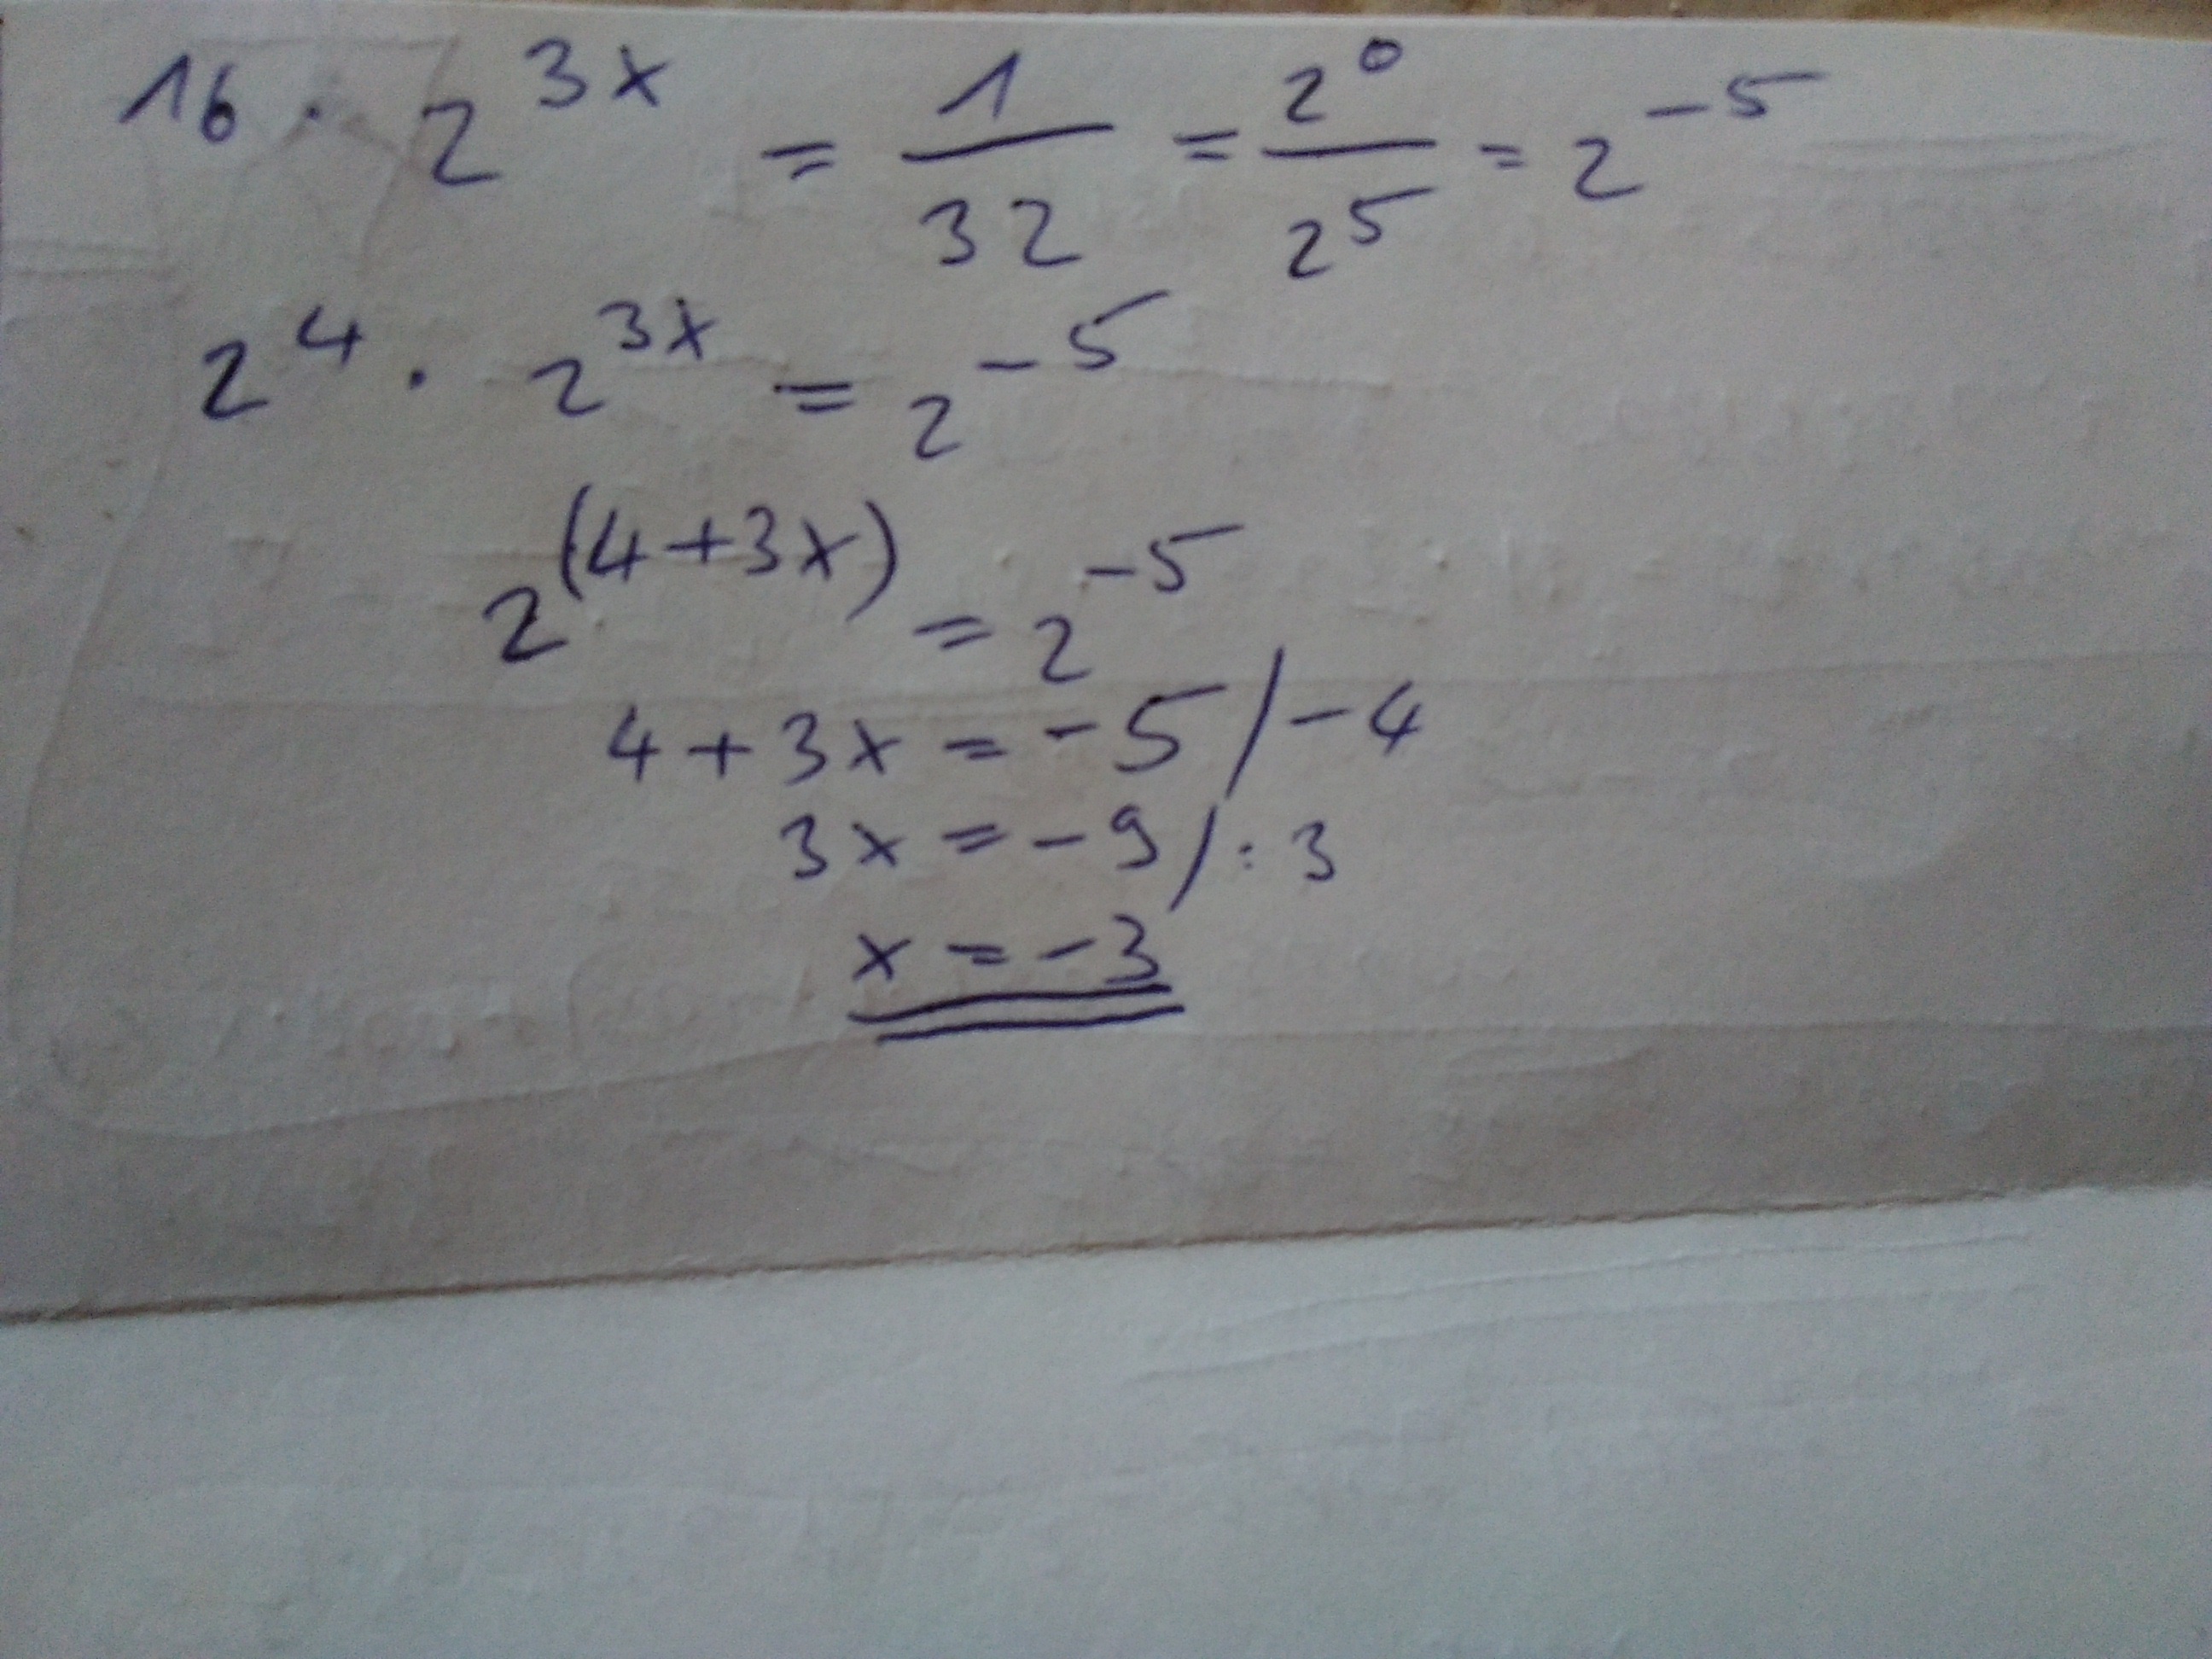 16 · 2^3x = 1/32 = 2^0/2^5 = 2^-5
2^4 · 2^3x = 2^-5
2^(4+3x) = 2^-5
4 + 3x = -5 / -4
3x = -9 / : 3
x = -3